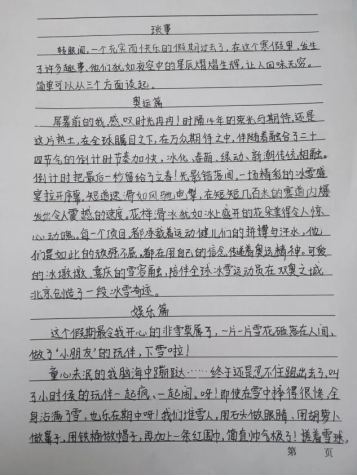 琐事
转眼间,一个充实而快乐的假期过去了,在这个寒假里,发生
了许多趣事,他们犹如夜空中的星辰熠熠生辉,让人回味无穷。
简单可以从三个方面谈起。
奥运篇
屏幕前的我,感叹时光冉冉!时隔14年的荣光与期待,还是
这片热土,在全球瞩目之下,在万众期待之中,伴随着融合了二十
四节气的倒计时节奏加快,冰化、春雨、绿动、新潮传统相融。
倒计时把最后一秒留给了立春!光影错落间,一场精彩的冰雪盛
宴拉开序幕。短道速滑如风驰电掣,在短短几百米的赛道内爆
发出令人震撼的速度,花样滑冰就如冰上盛开的花朵美得令人惊
心动魄。每一个项目,都承载着运动健儿们的拼搏与汗水,他
们是如此的放荡不羁,都在用自己的信念传递着奥运精神。可爱
的冰墩墩、喜庆的雪容融,陪伴全球冰雪运动员在双奥之城
北京创造了一段冰雪奇迹。
娱乐篇
这个假期最令我开心的非雪莫属了,一片一片雪花砸落在人间,
做了“小朋友”的玩伴,下雪啦!
童心未泯的我脑海中蹦跶……终于还是忍不住跑出去了,叫
了小时候的玩伴一起疯、一起闹。呀!即使在雪中摔得很惨,全
身沾满了雪,也乐在期中呀!我们堆雪人,用石头做眼睛,用胡萝卜
做鼻子,用铁桶做帽子,再加上一条红围巾,简直帅气极了!搓着雪球,
第 页